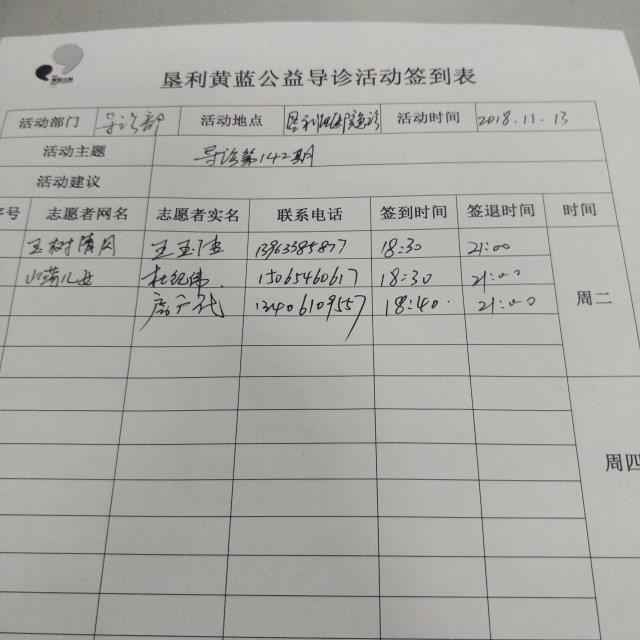 垦利黄蓝公益导诊活动签到表
活动部门 导诊部 活动地点 活动时间 2018.11.13
活动主题 导诊第142期
活动建议
序号 志愿者网名 志愿者实名 联系电话 签到时间 签退时间 时间
玉树清风 13963385877 18:30 21:00
杜纪伟 15065460617 18:30 21:00
13406109557 18:40 21:00
周二
周四